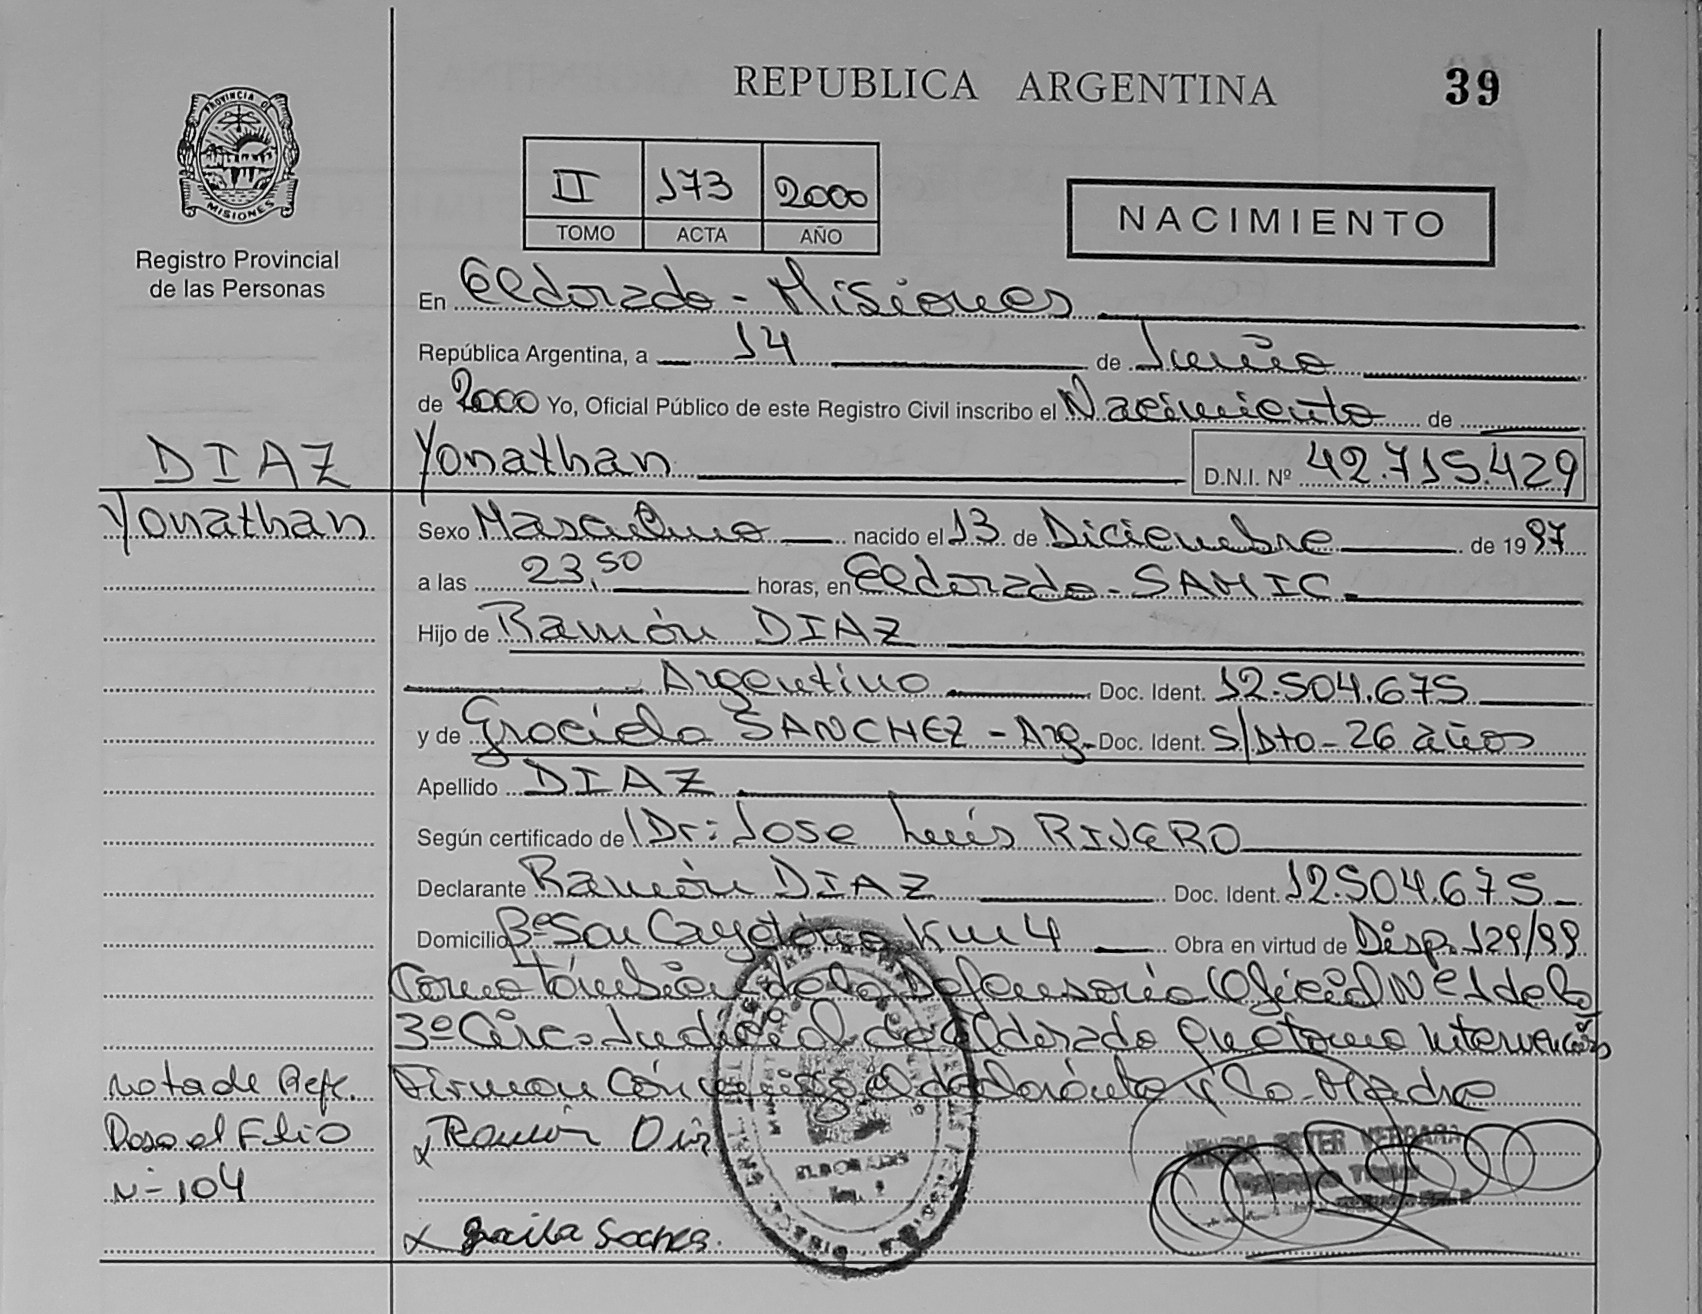 REPUBLICA ARGENTINA
39
PROVINCIA DE
MISIONES
Registro Provincial
de las Personas
II 173 2000
TOMO ACTA AÑO
NACIMIENTO
En Eldorado - Misiones
República Argentina, a 14 de Junio
de 2000 Yo, Oficial Público de este Registro Civil inscribo el Nacimiento de
DIAZ
Yonathan
Yonathan D.N.I. Nº 42.715.429
Sexo Masculino nacido el 13 de Diciembre de 1997
a las 23,50 horas, en Eldorado - SAMIC.
Hijo de Ramón DIAZ
Argentino Doc. Ident. 12.504.675
y de Graciela SANCHEZ - Arg. Doc. Ident. S/Dto - 26 años
Apellido DIAZ
Según certificado de Dr: Jose Luis RIVERO
Declarante Ramón DIAZ Doc. Ident. 12.504.675
Domicilio Bº San Cayetano Km 4 Obra en virtud de Disp. 129/99
Como también de la Defensoria Oficial Nº 1 de la
3º Circ. Judicial de Eldorado que tomo intervención
Firman conmigo el declarante y la Madre
Nota de Ref.
Paso al Folio
Nº 104
x Ramón Diaz
x
ELDORADO